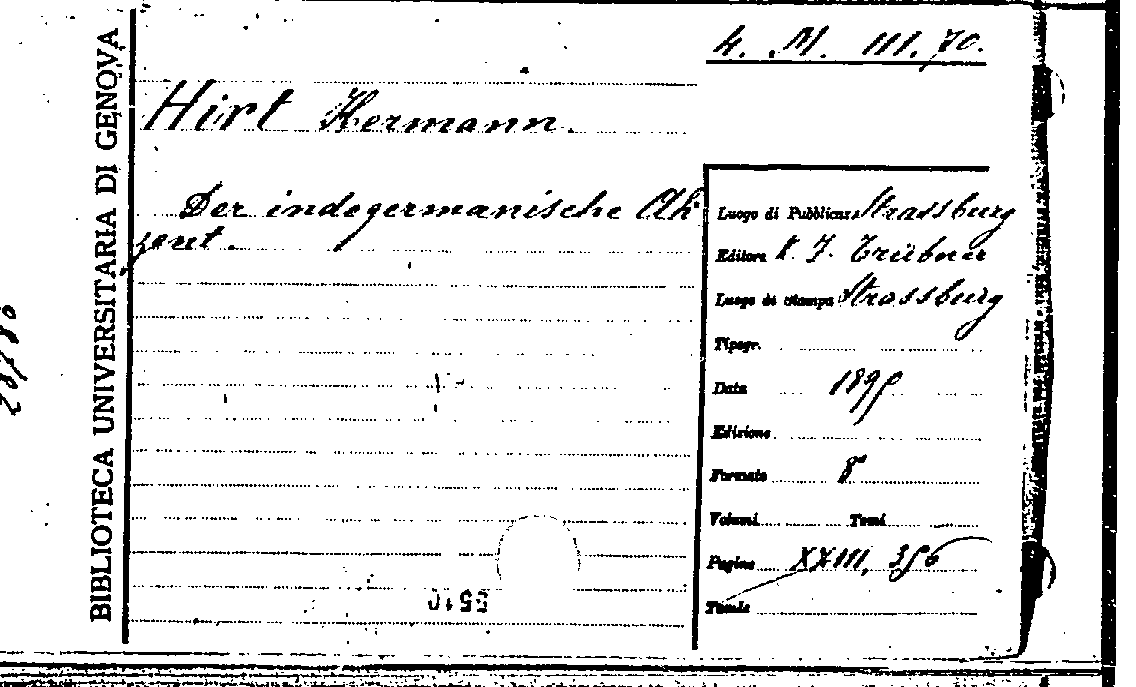 4. M. III. 70.
BIBLIOTECA UNIVERSITARIA DI GENOVA
Hirt Hermann.
Der indogermanische Ak
zent.
Luogo di Pubblicaz. Strassburg
Editore K. J. Trübner
Luogo di stampa Strassburg
Tipogr.
Data 1895
Edizione
Formato 8°
Volumi Tomi
Pagine XXIII, 356
Tavole
5510